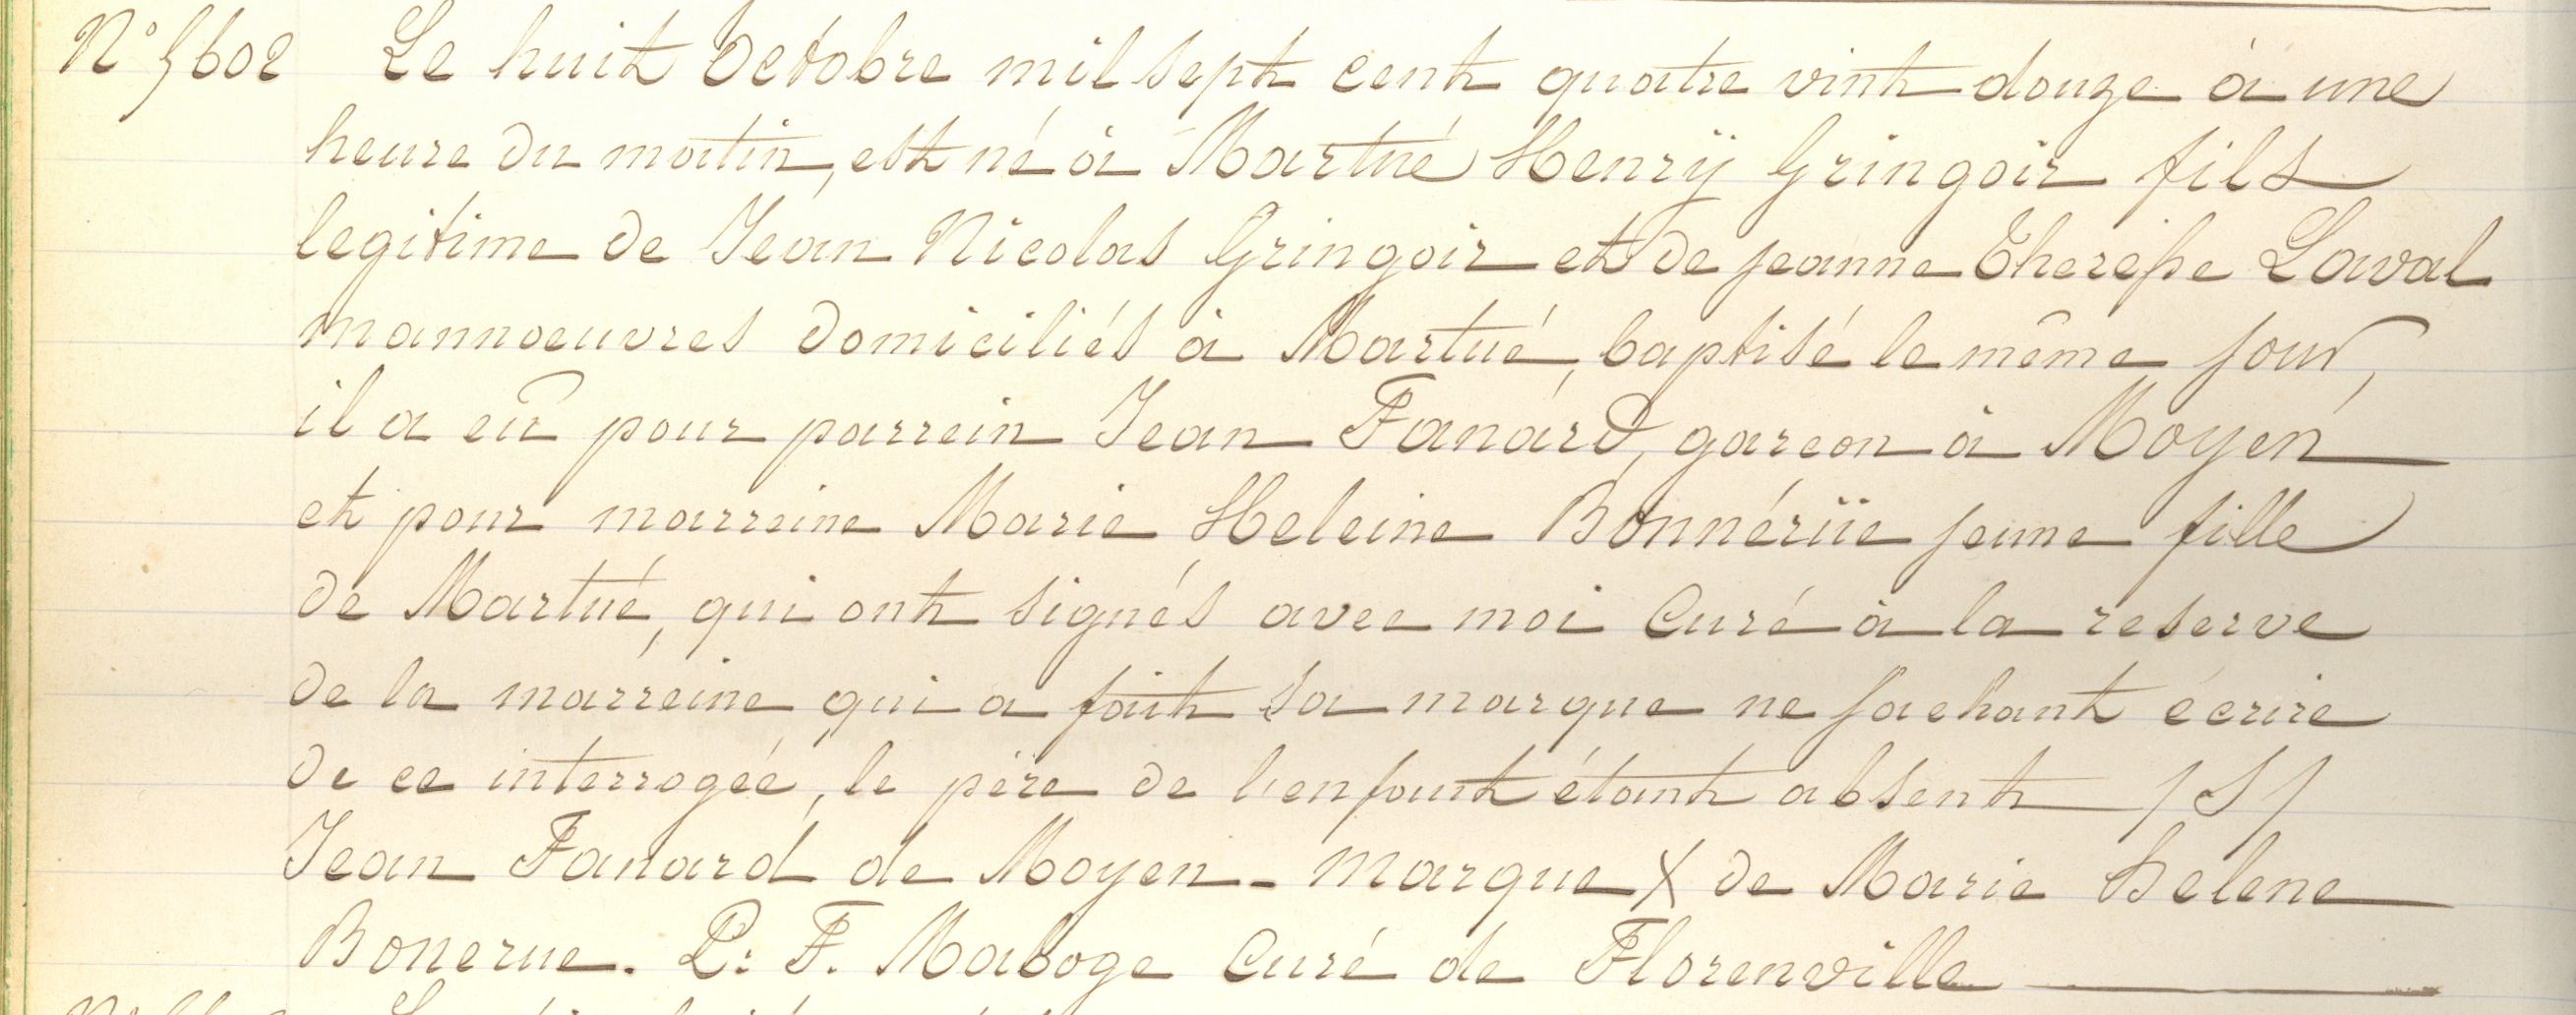 N° 5602 Le huit Octobre mil sept cent quatre vint douze à une
heure du matin, est né à Martué Henrÿ Gringoir fils
legitime de Jean Nicolas Gringoir et de jeanne Therese Laval
mannoeuvres domiciliés à Martué, baptisé le même jour,
il a eû pour parrein Jean Fanard, garcon à Moyen
et pour marreine Marie Heleine Bonnérüe jeune fille
de Martué, qui ont signés avec moi Curé à la reserve
de la marreine qui a fait sa marque ne sachant écrire
de ce interrogéé, le père de l'enfant étant absent /S/
Jean Fanard de Moyen - Marque X de Marie helene
Bonerue. P: F. Maboge Curé de Florenville